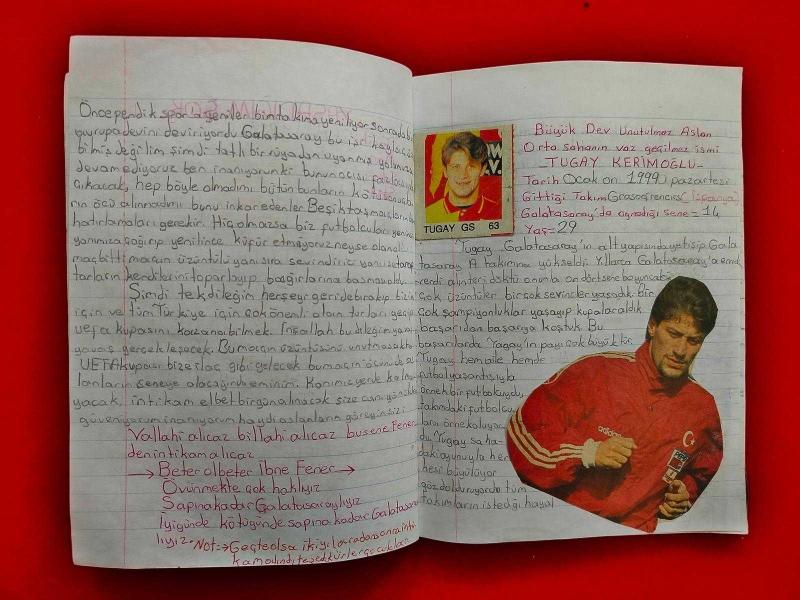 Önce pendik spor'a yeniler bir takıma yeniliyor sonrada bir
avrupa devini deviriyordu Galatasaray bu işi haylaca
bilmiş değilim şimdi tatlı bir rüyadan uyanmış yolumuza
devam ediyoruz ben inanıyorunki bunun acısı fazlasıyla
çıkacak, hep böyle olmadımı bütün bunların kötü sonuçla
rın öcü alınmadımı bunu inkar edenler Beşiktaş maçlarını
hatırlamaları gerekir. Hiç olmazsa biz futbolcuları yenince
yanımıza çağırıp yenilince küfür etmiyoruz neyse olan oldu
maç bitti maçın üzüntülü yanısıra sevindirici yanı
tarların kendilerini toparlayıp bağırlarına basmasıydı
Şimdi tek dileğim herşeyi geride bırakıp bizim
için ve tüm Türkiye için çok önemli olan turları geçip
uefa kupasını kazanabilmek. İnşallah bu dileğim yavaş
yavaş gerçekleşecek. Bu maçın üzüntüsünü unutmasakta
UEFA kupası bize ilaç gibi gelecek bu maçın öcünü de as
lanların seneye alacağından eminim. Kanımız yerde kalma
yacak, intikam elbet bir gün alınacak size can gönülden
güveniyorum inanıyorum haydi aslanlarım göreyim sizi
Vallahi alıcaz billahi alıcaz bu sene Fener
den intikam alıcaz
→ Beter ol beter ibne Fener →
Övünmekte çok haklıyız
Sapına kadar Galatasaraylıyız
İyi günde kötü günde sapına kadar Galatasaray
lıyız. Not:→ Geçte olsa iki yıl aradan sonra inti
kam alındı teşekkürler çocuklar
TUGAY GS 63
Büyük Dev Unutulmaz Aslan
Orta sahanın vaz geçilmez ismi
TUGAY KERİMOĞLU
Tarih Ocak on 1999 pazartesi
Gittiği Takım Grasofrencıss (İspanya)
Galatasaray'da oynadığı sene = 14
Yaş = 29
Tugay, Galatasaray'ın alt yapısında yetişip Gala
tasaray A takımına yükseldi. Yıllarca Galatasaray'a emek
verdi alınteri döktü onunla on dört sene boyunca bir
çok üzüntüler bir çok sevinçler yaşadık. Bir
çok şampiyonluklar yaşayıp kupalar aldık.
başarıdan başarıya koştuk. Bu
başarılarda Tugay'ın payı çok büyüktür.
Tugay hem aile hemde
futbol yaşantısıyla
örnek bir futbolcuydu
takımdaki futbolcu
lara örnek oluyor
du, Tugay saha
daki oyunuyla her
kesi büyülüyor
göz dolduruyordu tüm
takımların istediği hayal
adidas